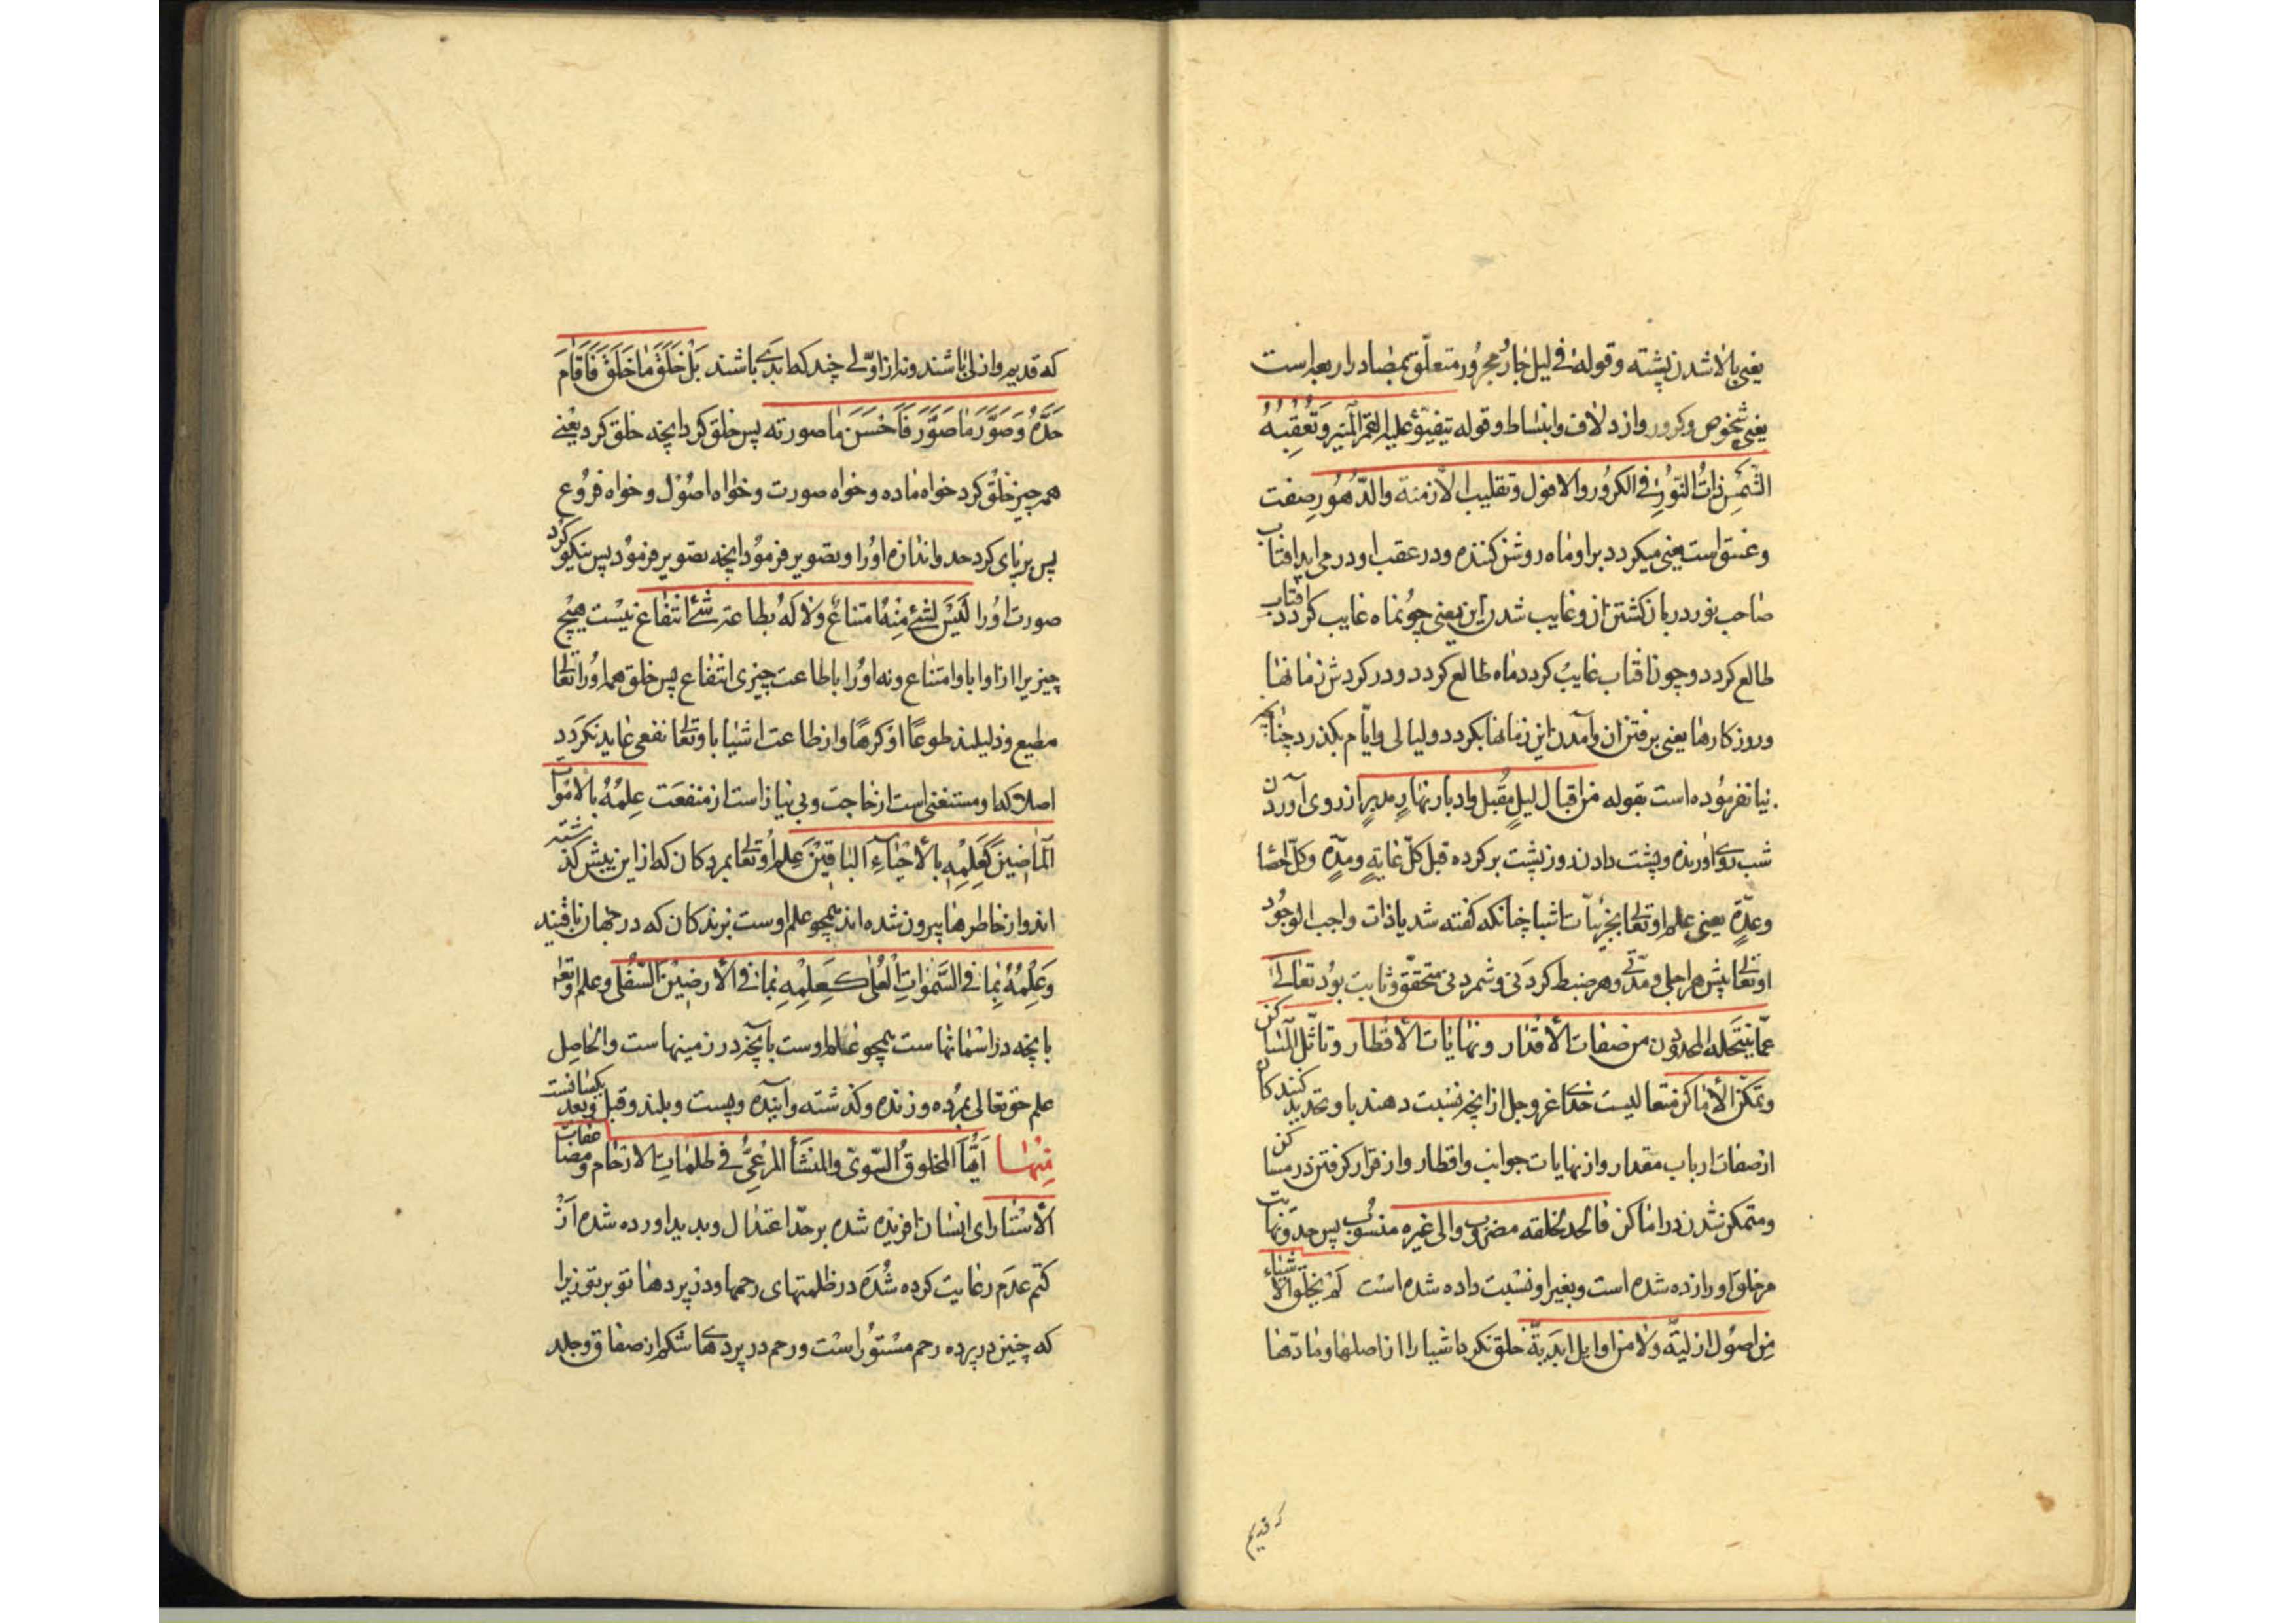 یعنی بالا شدن پشته و قوله فی لیل جار مجرور متعلّق بمصادر اربعه است
یعنی شخوص و کرور و ازدلاف و انبساط و قوله یتفیّؤ علیه القمر المنیر و تعقبه
الشّمس ذات النّور فی الکرور و الافول و تقلیب الازمنة و الدّهور صفت
و غسق است یعنی میکردد بر او ماه روشن کننده و در عقب او در می اید افتاب
صاحب نور در باز کشتن از و غایب شدن این یعنی چو نماه غایب کردد افتاب
طالع کردد و چون افتاب غایب کردد ماه طالع کردد و در کردش زمانها
و روزکارها یعنی برفتن ان و آمدن این زمانها بکردد و لیالی و ایّام بکذرد چنانچه
بیان فرموده است بقوله من اقبال لیلٍ مقبل و ادبار نهارٍ مدبرٍ از روی آوردن
شب روی اورنده و پشت دادن روز پشت بر کرده قبل کلّ غایةٍ و مدّةٍ و کلّ احصا
و عدّةٍ یعنی علم او تعالی بجزئیّات اشیا چنانکه کفته شد یا ذات واجب الوجود
او تعالی پیش هر اجلی و مدّتی و هر ضبط کردنی و شمردنی متحقّق و ثابت بود تعالی
عمّا ینتحله المحدّدون من صفات الأقدار و نهایات الأقطار و تاثّل المساکن
و تمکّن الأماکن متعالیست خدای عز و جل از انچه نسبت دهند باو تحدید کنندکان
از صفات ارباب مقدار و از نهایات جوانب و اقطار و از قرار کرفتن در مساکن
و متمکن شدن در اماکن فالحد لخلقه مضروب و الی غیره منسوب پس حد و نهایت
مر خلق او را زده شده است و بغیر او نسبت داده شده است لم یخلق الأشیاء
من اصول ازلیّة و لا من اوایل ابدیّة خلق نکرد اشیا را از اصلها و مادّها
که قدیم
که قدیم و ازلی باشند و نه از اوّلی چند که ابدی باشند بل خلق ما خلق فاقام
حدّه و صوّر ما صوّر فاحسن ما صورته پس خلق کرد انچه خلق کرد یعنی
همه چیز خلق کرد خواه ماده و خواه صورت و خواه اصول و خواه فروع
پس بر پای کرد حد و اندازه او را و تصویر فرمود انچه تصویر فرمود پس نیکو کرد
صورت او را لیس لشئ منه امتناع و لا له بطاعة شئ انتفاع نیست هیچ
چیزیرا از او ابا و امتناع و نه او را باطاعت چیزی انتفاع پس خلق همه او را تعالی
مطیع و ذلیلند طوعًا او کرهًا و از طاعت اشیا باو تعالی نفعی عاید نکردد
اصلا که او مستغنی است از حاجت و بی نیاز است از منفعت علمه بالاموات
الماضین کعلمه بالأحیاء الباقین علم او تعالی بمردکان که از این پیش کذشته
اند و از خاطرها بیرون شده اند همچو علم اوست بزندکان که در جهان باقیند
و علمه بما فی السّموات العلی کعلمه بما فی الأرضین السّفلی و علم او تعالی
بانچه در اسمانهاست همچو علم اوست بآنچه در زمینهاست و الحاصل
علم حق تعالی بمرده و زنده و کذشته و آینده و پست و بلند و قبل و بعد یکسانست
منها أیّها المخلوق السّویّ و المنشأ المرعیّ فی ظلمات الارحام و مضاعفات
الأستار ای انسان افریده شده بر حدّ اعتدال و پدید اورده شده از
کتم عدم رعایت کرده شده در ظلمتهای رحمها و در پردهای تو بر تو زیرا
که جنین در پرده رحم مستور است و رحم در پردهای شکم از صفاق و جلد